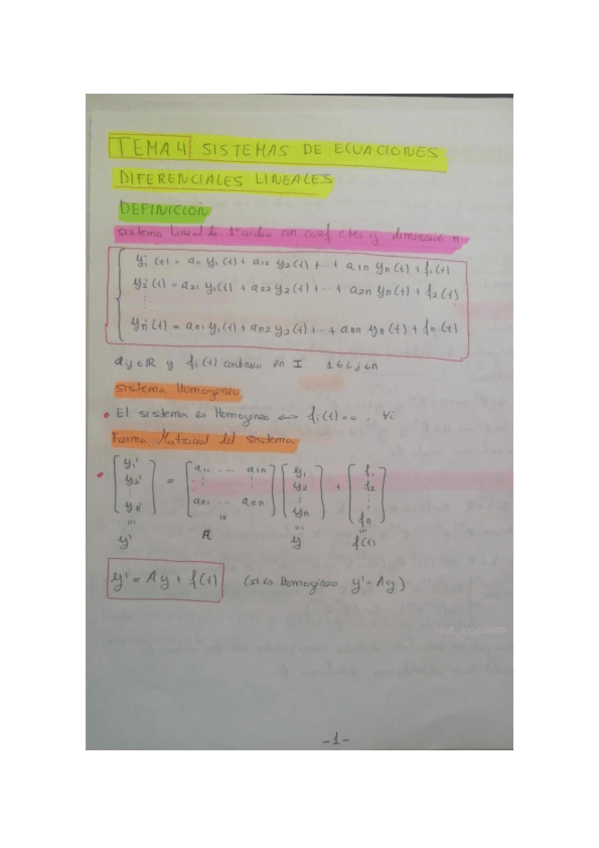 TEMA 4 SISTEMAS DE ECUACIONES
DIFERENCIALES LINEALES
DEFINICIÓN
sistema Lineal de 1er orden con coef ctes y dimensión n
y1'(t) = a11 y1(t) + a12 y2(t) + ... + a1n yn(t) + f1(t)
y2'(t) = a21 y1(t) + a22 y2(t) + ... + a2n yn(t) + f2(t)
⋮
yn'(t) = an1 y1(t) + an2 y2(t) + ... + ann yn(t) + fn(t)
aij ∈ IR y fi(t) continua en I. 1≤i,j≤n
sistema Homogeneo
• El sistema es Homogeneo ⟺ fi(t)=0, ∀i
Forma Matricial del sistema
• [y1' y2' ⋮ yn'] = [a11 ... a1n ⋮ ⋮ an1 ... ann] [y1 y2 ⋮ yn] + [f1 f2 ⋮ fn]
y' A y f(t)
y' = Ay + f(t) (si es Homogéneo y' = Ay)
-1-